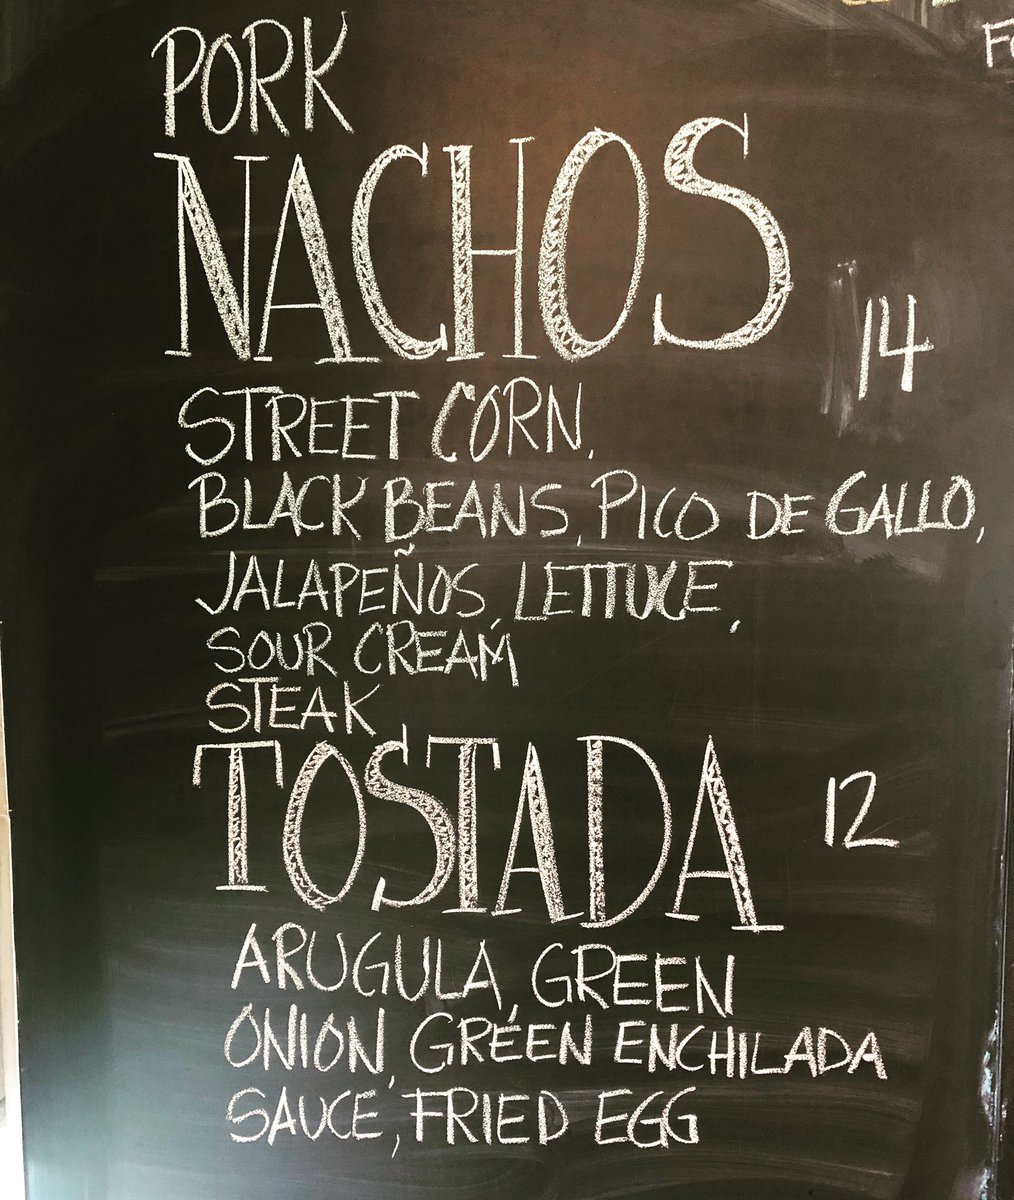 PORK
NACHOS 14
STREET CORN,
BLACK BEANS, PICO DE GALLO,
JALAPEÑOS, LETTUCE,
SOUR CREAM
STEAK
TOSTADA 12
ARUGULA, GREEN
ONION, GREEN ENCHILADA
SAUCE, FRIED EGG